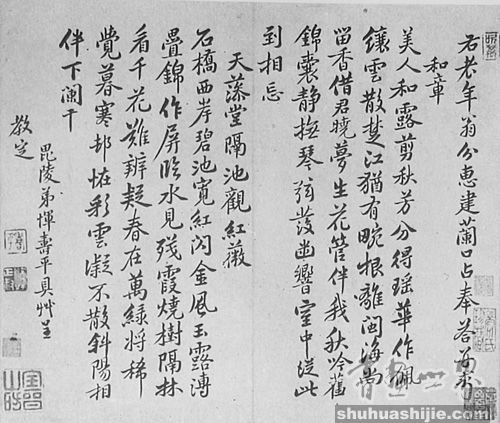 老年翁分惠建蘭口占奉答求
和章
美人和露剪秋芳分得瑶華作珮
纕雲散楚江猶有畹根離閩海尚
留香借君曉夢生花管伴我秋吟舊
錦囊靜撫琴弦發幽響室中從此
到相忘
天藻堂隔池觀紅薇
石橋西岸碧池寬紅閃金風玉露漙
疊錦作屏臨水見殘霞燒樹隔林
看千花難辨疑春在萬綠將稀
覺暮寒却恠彩雲凝不散斜陽相
伴下闌干
毘陵弟惲壽平具艸呈
教定
shuhuashijie.com